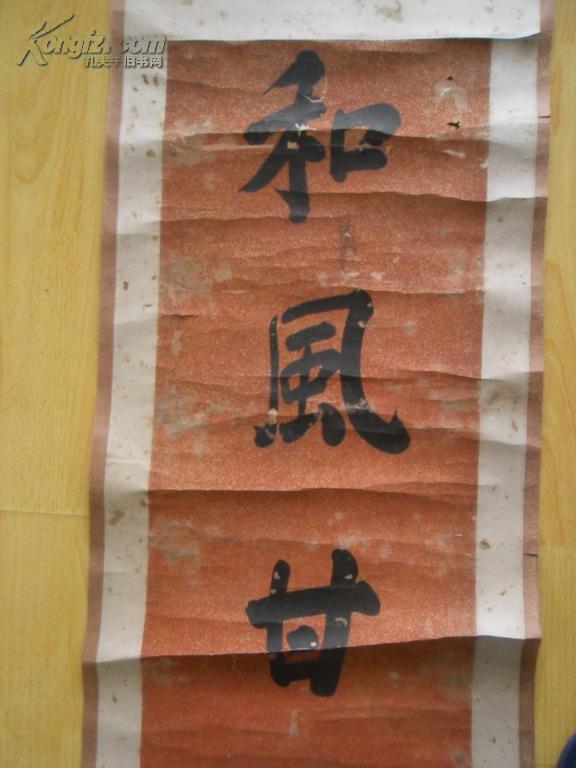 Kongfz.com
孔夫子旧书网
和
風
甘